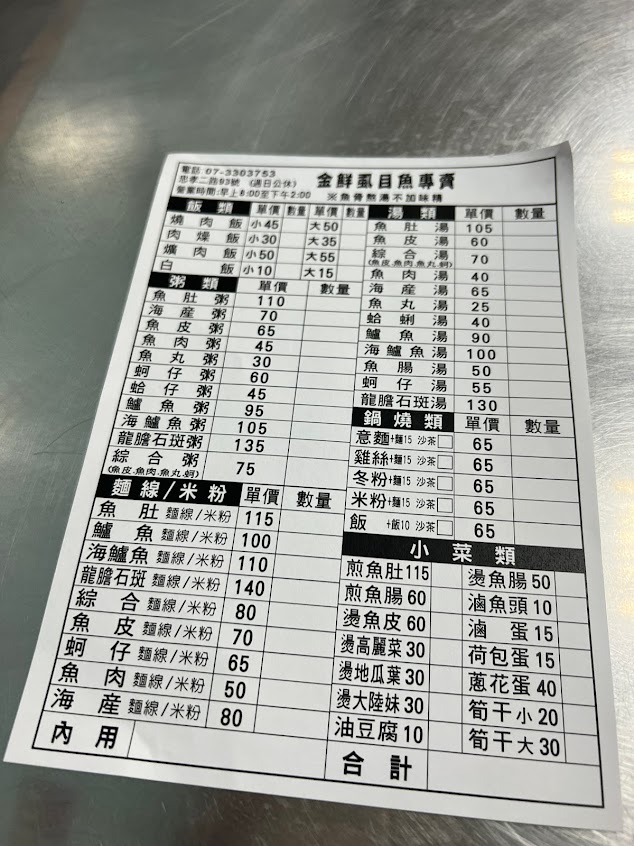 電話 07-3303753
忠孝二路93號 (週日公休)
營業時間:早上6:00至下午2:00
金鮮虱目魚專賣
※魚骨熬湯不加味精
飯類 單價 數量 單價 數量
燒肉飯 小45 大50
肉燥飯 小30 大35
爌肉飯 小50 大55
白飯 小10 大15
粥類 單價 數量
魚肚粥 110
海產粥 70
魚皮粥 65
魚肉粥 45
魚丸粥 30
蚵仔粥 60
蛤仔粥 45
鱸魚粥 95
海鱸魚粥 105
龍膽石斑粥 135
綜合粥 75
(魚皮.魚肉.魚丸.蚵)
麵線/米粉 單價 數量
魚肚 麵線/米粉 115
鱸魚 麵線/米粉 100
海鱸魚 麵線/米粉 110
龍膽石斑 麵線/米粉 140
綜合 麵線/米粉 80
魚皮 麵線/米粉 70
蚵仔 麵線/米粉 65
魚肉 麵線/米粉 50
海產 麵線/米粉 80
內用
湯類 單價 數量
魚肚湯 105
魚皮湯 60
綜合湯 70
(魚皮.魚肉.魚丸.蚵)
魚肉湯 40
海產湯 65
魚丸湯 25
蛤蜊湯 40
鱸魚湯 90
海鱸魚湯 100
魚腸湯 50
蚵仔湯 55
龍膽石斑湯 130
鍋燒類 單價 數量
意麵+麵15 沙茶 65
雞絲+麵15 沙茶 65
冬粉+麵15 沙茶 65
米粉+麵15 沙茶 65
飯 +飯10 沙茶 65
小菜類
煎魚肚115 燙魚腸50
煎魚腸60 滷魚頭10
燙魚皮60 滷蛋15
燙高麗菜30 荷包蛋15
燙地瓜葉30 蔥花蛋40
燙大陸妹30 筍干小20
油豆腐10 筍干大30
合計